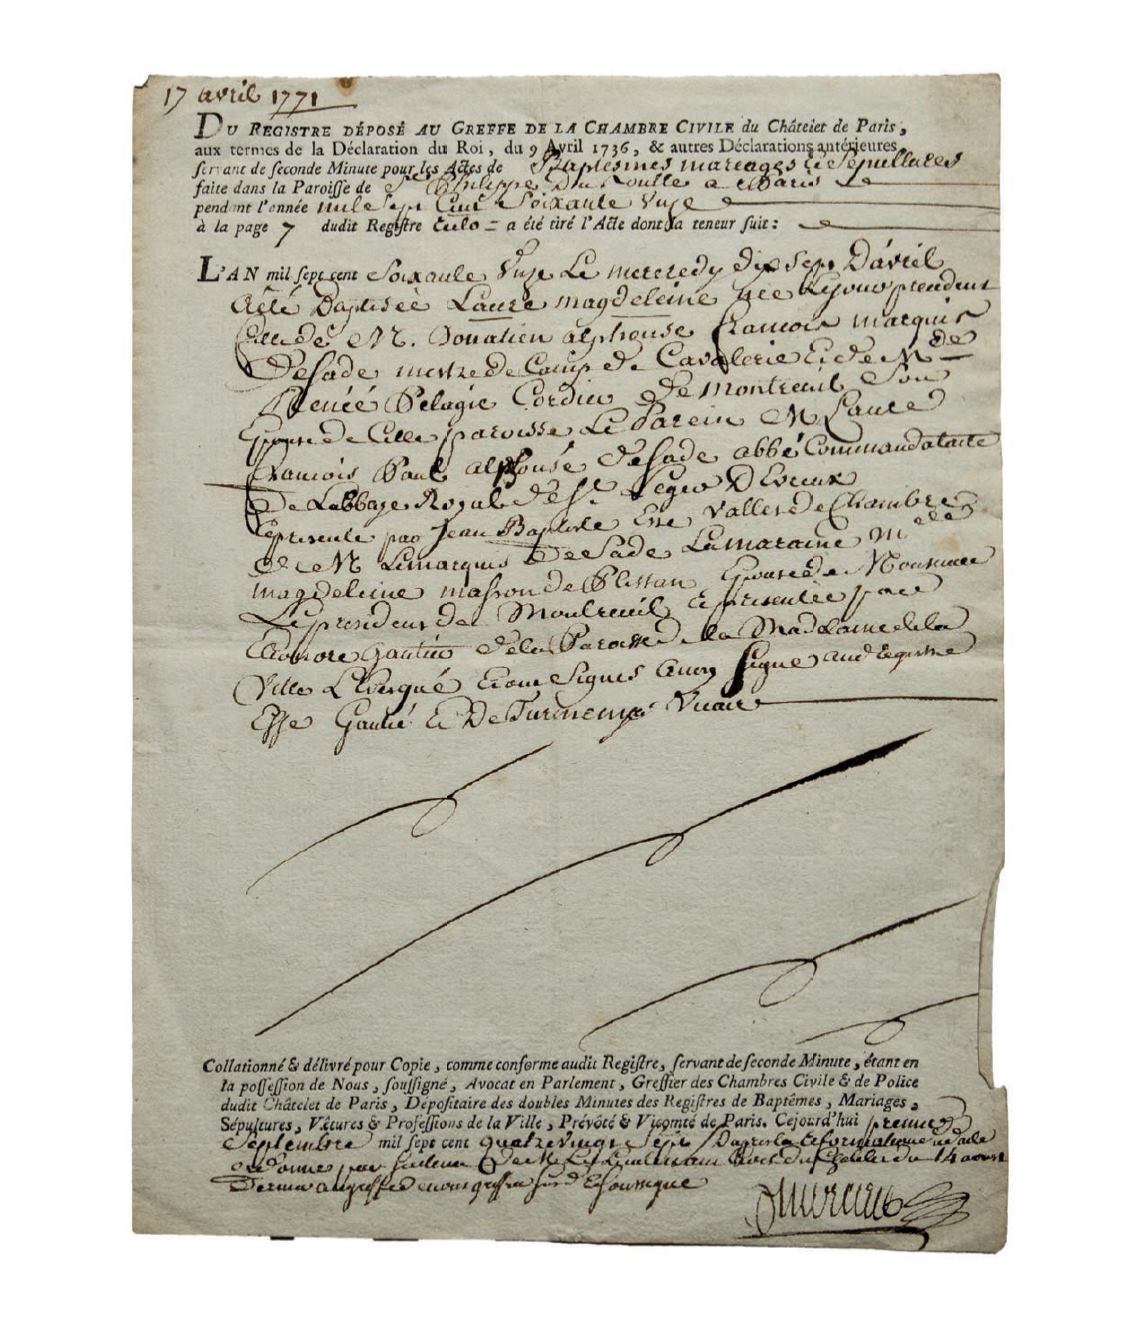 17 avril 1771
DU REGISTRE DÉPOSÉ AU GREFFE DE LA CHAMBRE CIVILE du Châtelet de Paris,
aux termes de la Déclaration du Roi, du 9 Avril 1736, & autres Déclarations antérieures,
servant de seconde Minute pour les Actes de Baptesmes mariages & Sepultures
faite dans la Paroisse de St Philippe Du Roulle a Paris
pendant l'année mile Sept Cent Soixante Unze
à la page 7 dudit Registre a été tiré l'Acte dont la teneur suit :
L'AN mil sept cent Soixante Unze Le mercredy dix Sept Davril
A été Baptisée Laure magdeleine née
fille de M. Donatien alphonse francois marquis
De Sade mestre de Camp de Cavalerie Et de Mde
Renée Pelagie Cordier de montreuil Son
Epouse de Cette paroisse Le Parein M Laure
francois Paul alphonse de Sade abbé Commandataire
De Labbaye Royal de St Leger D Evreux
représenté par Jean Baptiste vallet de Chambre
de M Lemarquis De Sade La maraine Mde
magdeleine masson de Plissan Epouse de Monsieur
Le president de Montreuil représentée par
Eleonore Gautié de la Paroisse de la Madelaine de la
Ville L Evesque Et ont Signés Signé audit registre
Gautié Et De Vicaire
Collationné & délivré pour Copie, comme conforme audit Registre, servant de seconde Minute, étant en
la possession de Nous, soussigné, Avocat en Parlement, Greffier des Chambres Civile & de Police
dudit Châtelet de Paris, Dépositaire des doubles Minutes des Registres de Baptêmes, Mariages,
Sépultures, Vêtures & Professions de la Ville, Prévôté & Vicomté de Paris. Cejourd'hui premier
Septembre mil sept cent quatre vingt Sept
ordonnée par 14 aoust
Dernier au greffe soussigné